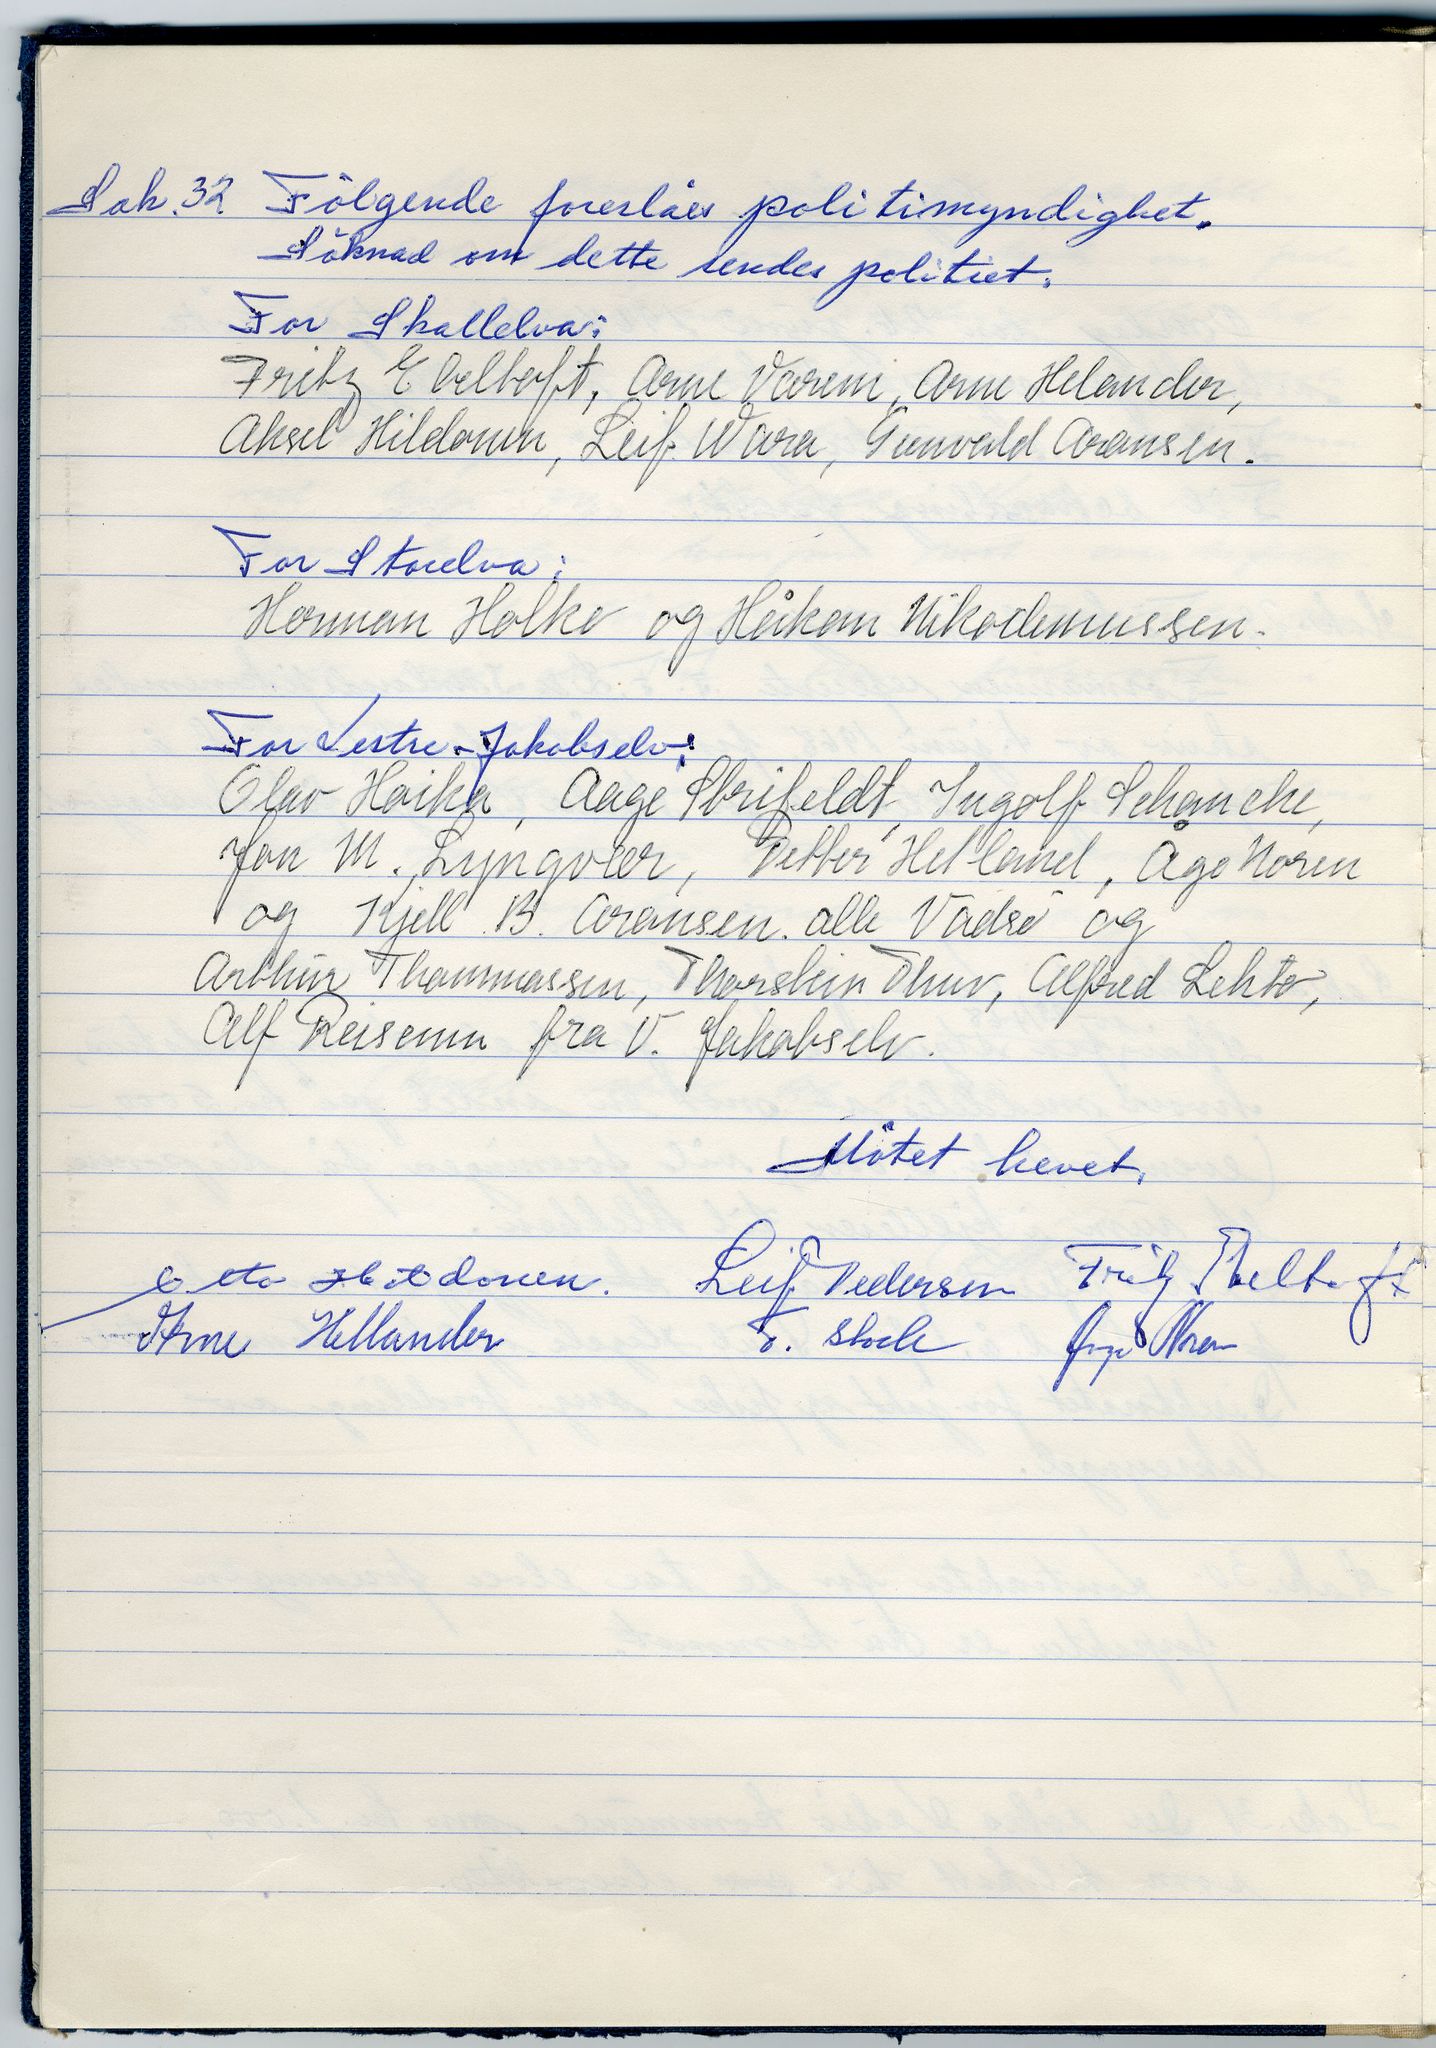 Sak. 32 Fölgende foreslåes politimyndighet.
Söknad om dette sendes politiet.
For Skallelva:
Fritz Ebeltoft, Arne Vareni, Arne Helander,
Aksel Hildonen, Leif Wara, Gunvald Aronsen.
For Storelva:
Herman Holke og Håkon Nikodemussen.
For Vestre-Jakobselv:
Olav Haika, Aage Strifeldt, Ingolf Schancke,
Jon M. Lyngvær, Petter Hetland, Åge Noren
og Kjell B. Aronsen. alle Vadsö og
Arthur Thommassen, Thorstein Thuv, Alfred Lehto,
Alf Reisenen fra V. Jakobselv.
Mötet hevet.
Otto Hildonen. Leif Pedersen Fritz Ebeltoft
Arne Hellander T. Stock Aage Noren